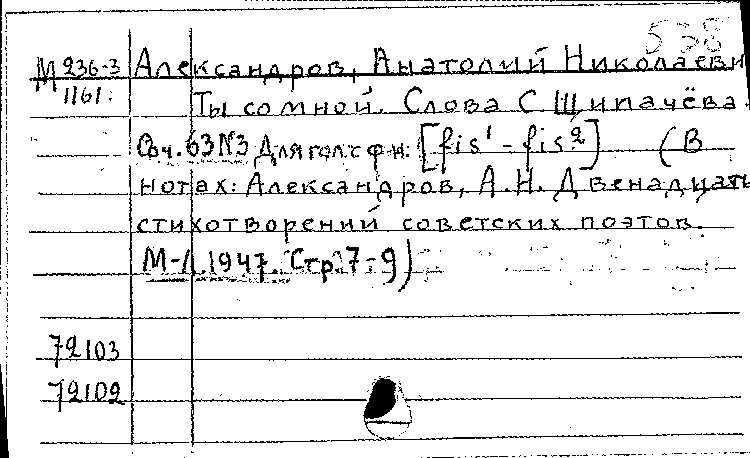 538
М 236-3 Александров, Анатолий Николаеви
1161. Ты со мной. Слова С. Щипачёва.
Соч. 63 N3 Для гол. с фн: [fis¹ - fis²] (В
нотах: Александров, А.Н. Двенадцать
стихотворений советских поэтов.
М-Л. 1947. Стр. 7-9)
72103
72102